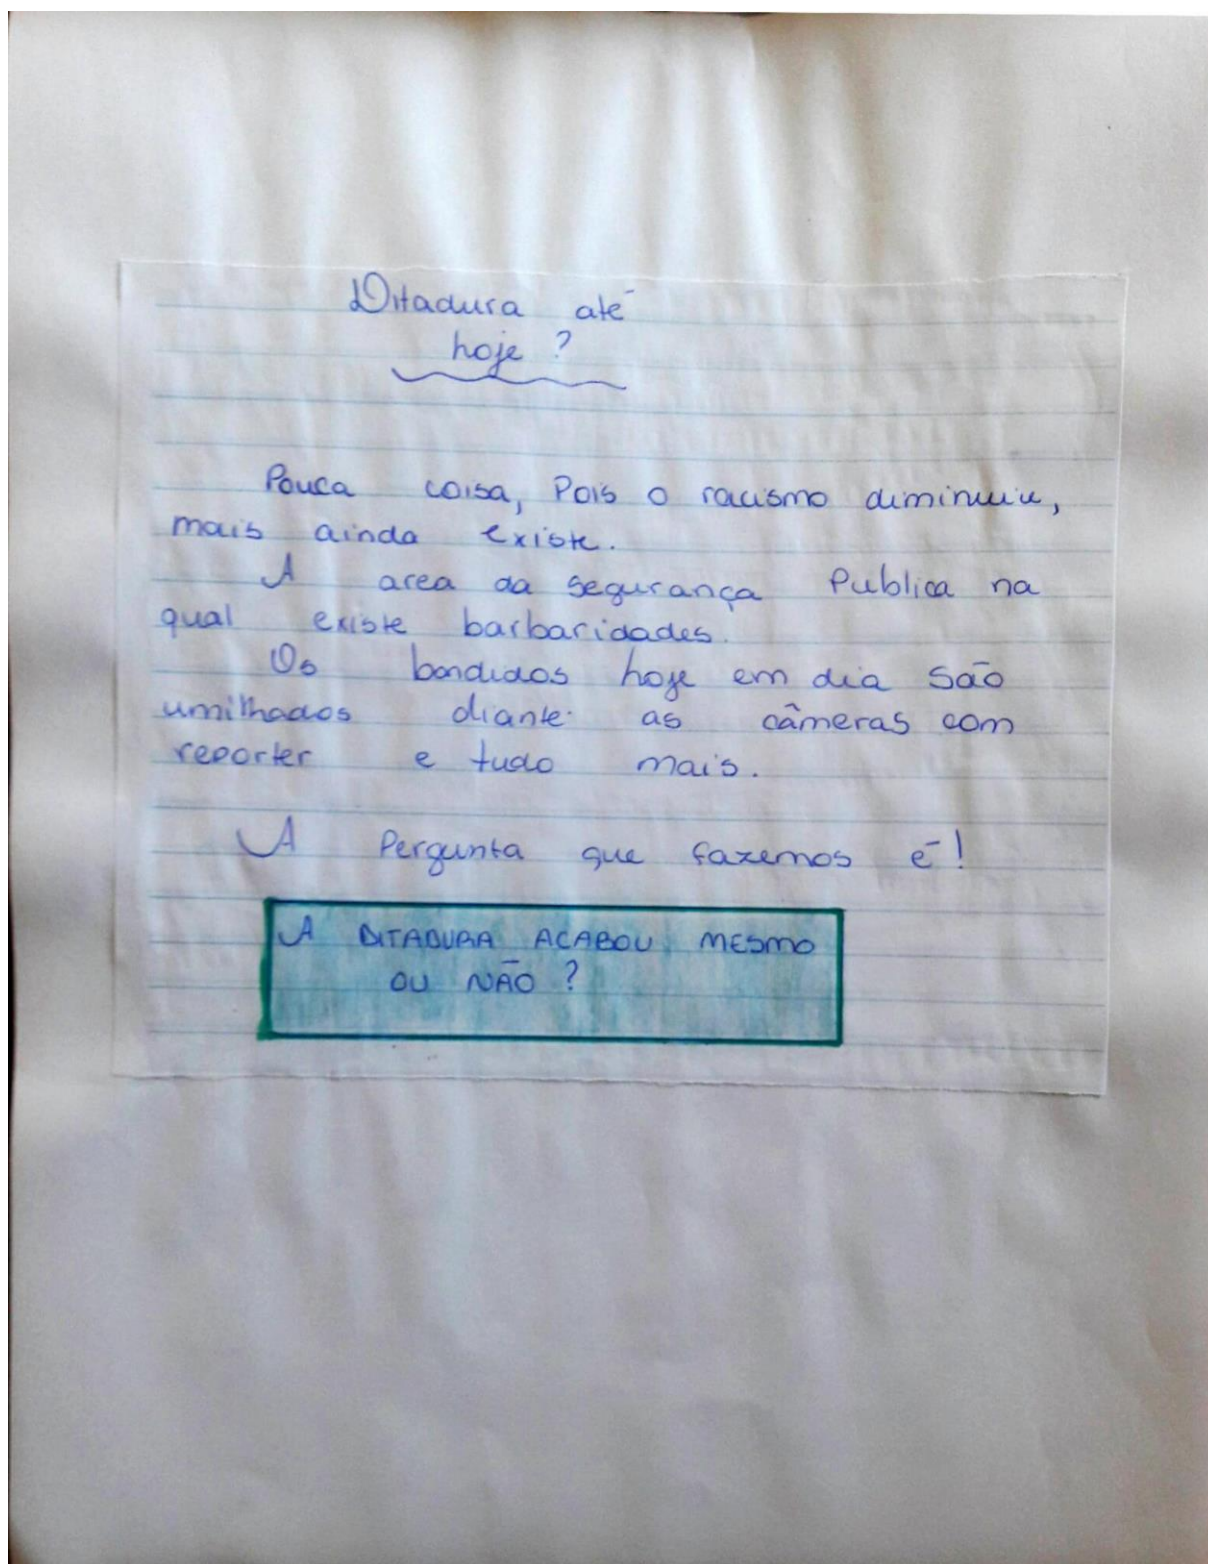 Ditadura até
hoje ?
Pouca coisa, Pois o racismo diminuiu,
mais ainda existe.
A area da segurança Publica na
qual existe barbaridades.
Os bandidos hoje em dia são
umilhados diante as câmeras com
reporter e tudo mais.
A Pergunta que fazemos é!
A DITADURA ACABOU MESMO
OU NÃO ?